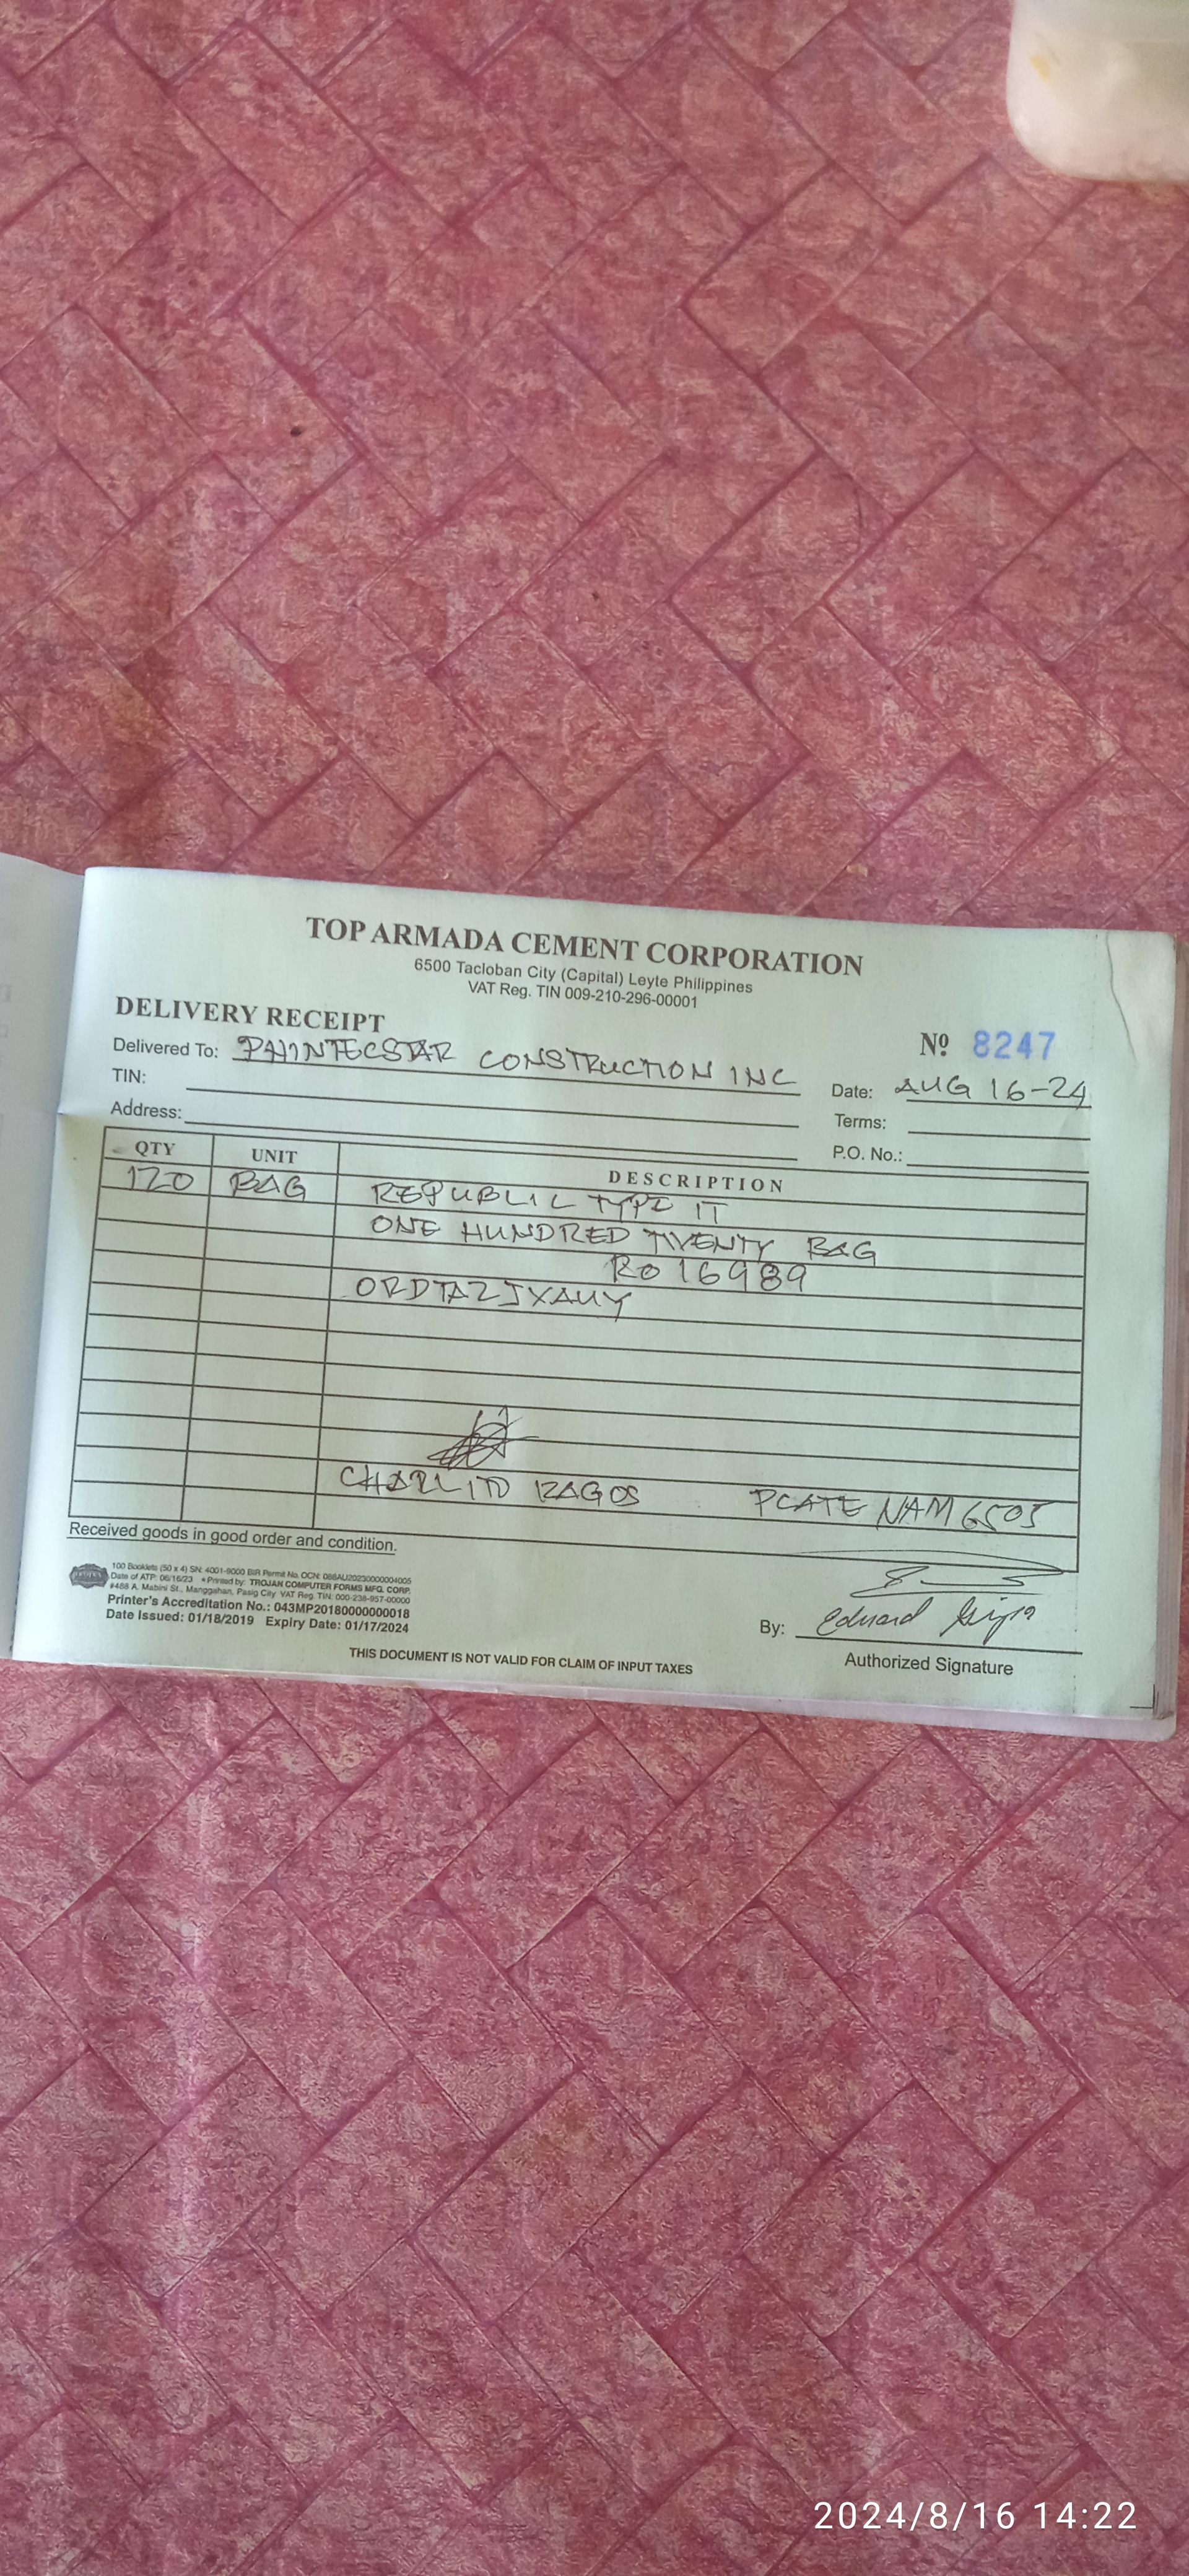 TOP ARMADA CEMENT CORPORATION
6500 Tacloban City (Capital) Leyte Philippines
VAT Reg. TIN 009-210-296-00001
DELIVERY RECEIPT
Nº 8247
Delivered To: PHINTECSTAR CONSTRUCTION INC
Date: AUG 16-24
TIN:
Terms:
Address:
P.O. No.:
QTY UNIT DESCRIPTION
120 BAG REPUBLIC TYPE IT
ONE HUNDRED TWENTY BAG
RO 16989
ORDTAZJXAUY
CHARLITO RAGOS PCATE NAM 6505
Received goods in good order and condition.
100 Booklets (50 x 4) SN: 4001-9000 BIR Permit No. OCN: 088AU20230000004005
Date of ATP: 06/16/23 • Printed by: TROJAN COMPUTER FORMS MFG. CORP.
#488 A. Mabini St., Manggahan, Pasig City VAT Reg. TIN: 000-238-957-00000
Printer's Accreditation No.: 043MP20180000000018
Date Issued: 01/18/2019 Expiry Date: 01/17/2024
By: Eduard
Authorized Signature
THIS DOCUMENT IS NOT VALID FOR CLAIM OF INPUT TAXES
2024/8/16 14:22